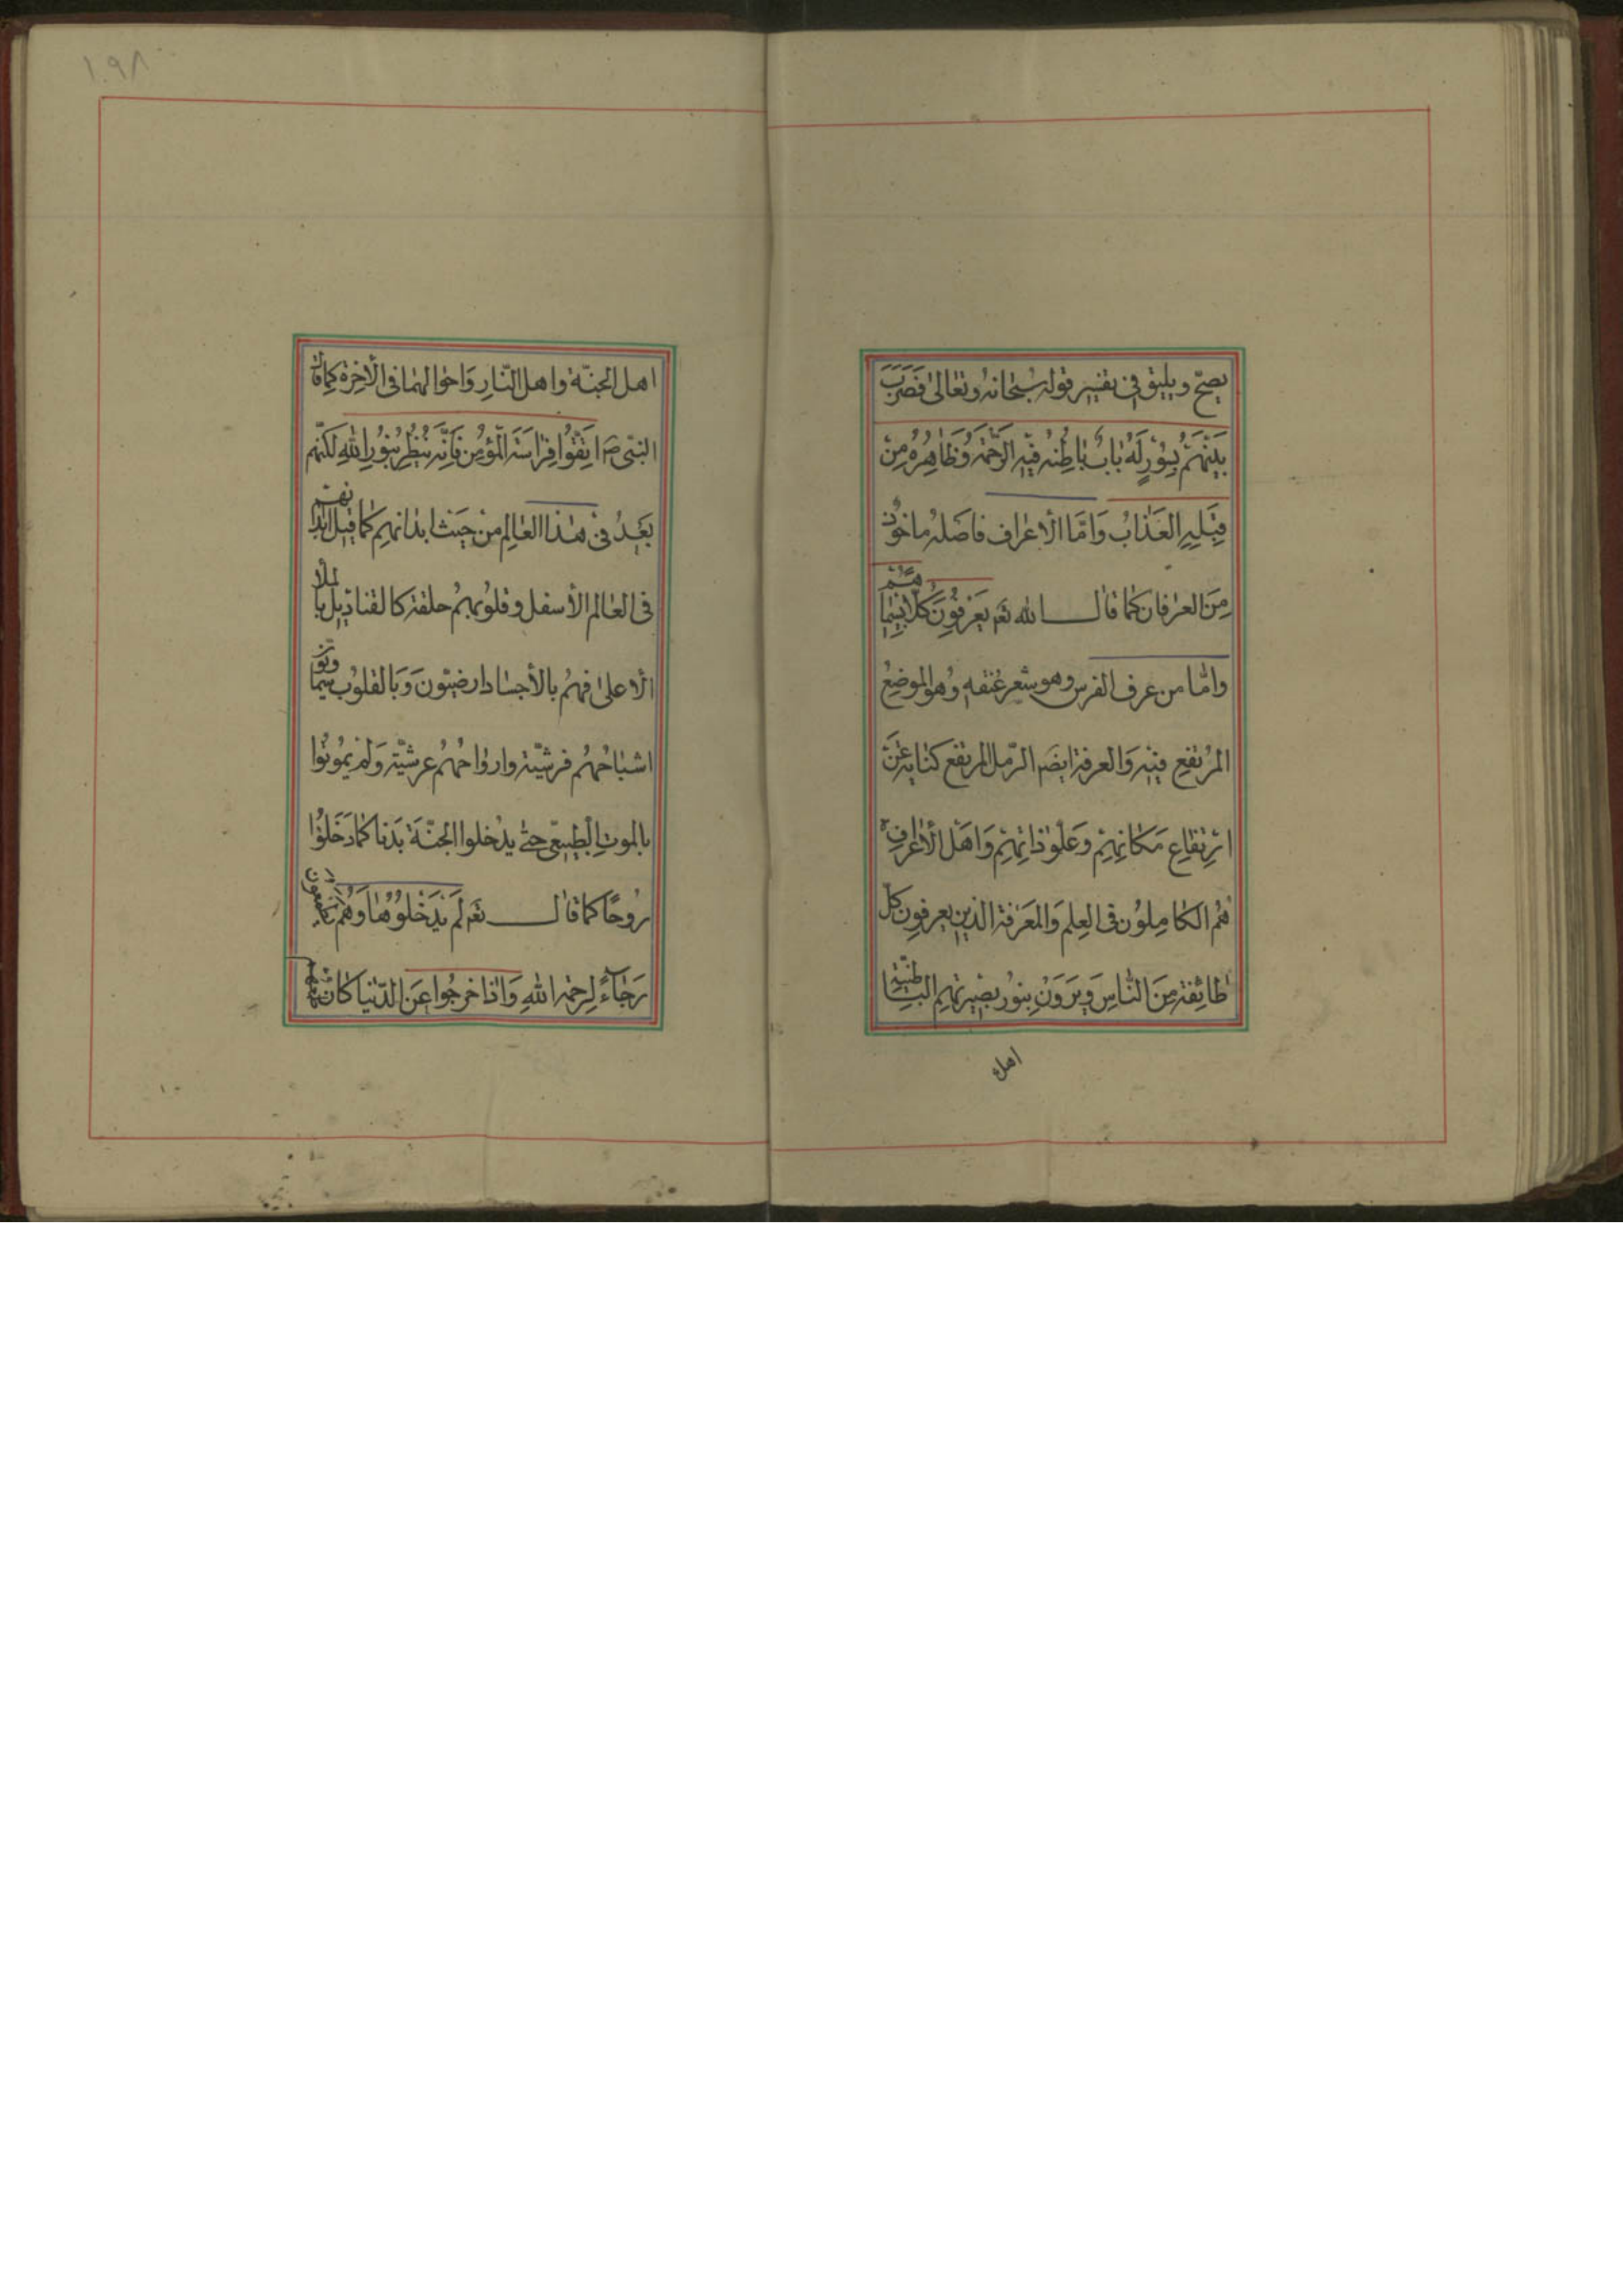 يصحّ و يليق فى تفسير قوله سُبحانه وتعالىٰ فَضُرِبَ
بَيْنَهُمْ بِسُوْرٍ لَهُ بٰابٌ بٰاطِنُهُ فيْهِ الرَّحْمَةُ وَظٰاهِرُهُ مِنْ
قِبَلِهِ العَذٰابُ وَامّا الأعراف فاصَلهُ ماخوُذ
مِنَ العرفان كما قال الله تعۤ يَعرفُونَ كُلاًّ بِسِيمٰاهُمْ
وامّا من عرف الفرس وهو شعر عُنقه وهُو الموضِعُ
المُرتفعِ فيْه وَالعرفة ايضَۤ الرّمل المرتفع كناية عَنْ
ارْتِفاعِ مَكانِهِمْ وَعلوّ ذاتِهِمْ وَاهْل الأعْراف
هُم الكامِلوُن فى العِلم وَالمَعَرفة الذين يعرفون كلّ
طائِفة مِنَ النّاسِ وَيرَوَنْ بنوُر بصيرتهِم الباطنيّة
اهل
١٠٩٨
اهل الجنّة واهل النّارِ وَاحوالهما فى الأخِرة كما قال
النبّى صۤ اتَّقوُا فِراسَة المؤمِن فَاِنَّه يَنْظُرُ بِنوُرِ اللهِ لكنّهم
بَعدُ فى هٰذا العالِم من حَيث ابدانهِم كما قيل ابدانهم
فى العٰالم الأسفل و قلوُبهمُ معلقة كالقناديل بالملأ
الأعلىٰ فهمُ بالأجساد ارضيّونَ وَبالقلوُب سماويّون
اشباحُهُم فرشيّة وارواحُهُم عرشيّة وَلم يموُتوُا
بالموتِ الطبيعّى حتّى يدْخلوا الجنّة بَدَنا كما دَخَلوُا
رُوحًا كما قال تعۤ لَم يَدْخُلوُهٰا وَهُم يَطْمَعون
رَجآءً لِرحمة اللهِ وَاذا خرجُوا عَن الدّنيا كان